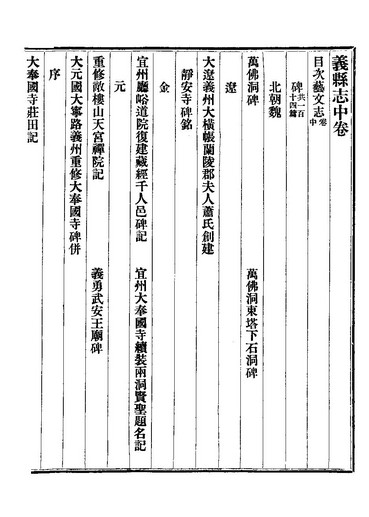 義縣志中卷
目次藝文志卷中
碑共一百十四篇
北朝魏
萬佛洞碑
萬佛洞東塔下石洞碑
遼
大遼義州大橫帳蘭陵郡夫人蕭氏創建
靜安寺碑銘
金
宜州廳峪道院復建藏經千人邑碑記
宜州大奉國寺續裝兩洞賢聖題名記
元
重修敵樓山天宮禪院記
義勇武安王廟碑
大元國大寧路義州重修大奉國寺碑併
序
大奉國寺莊田記